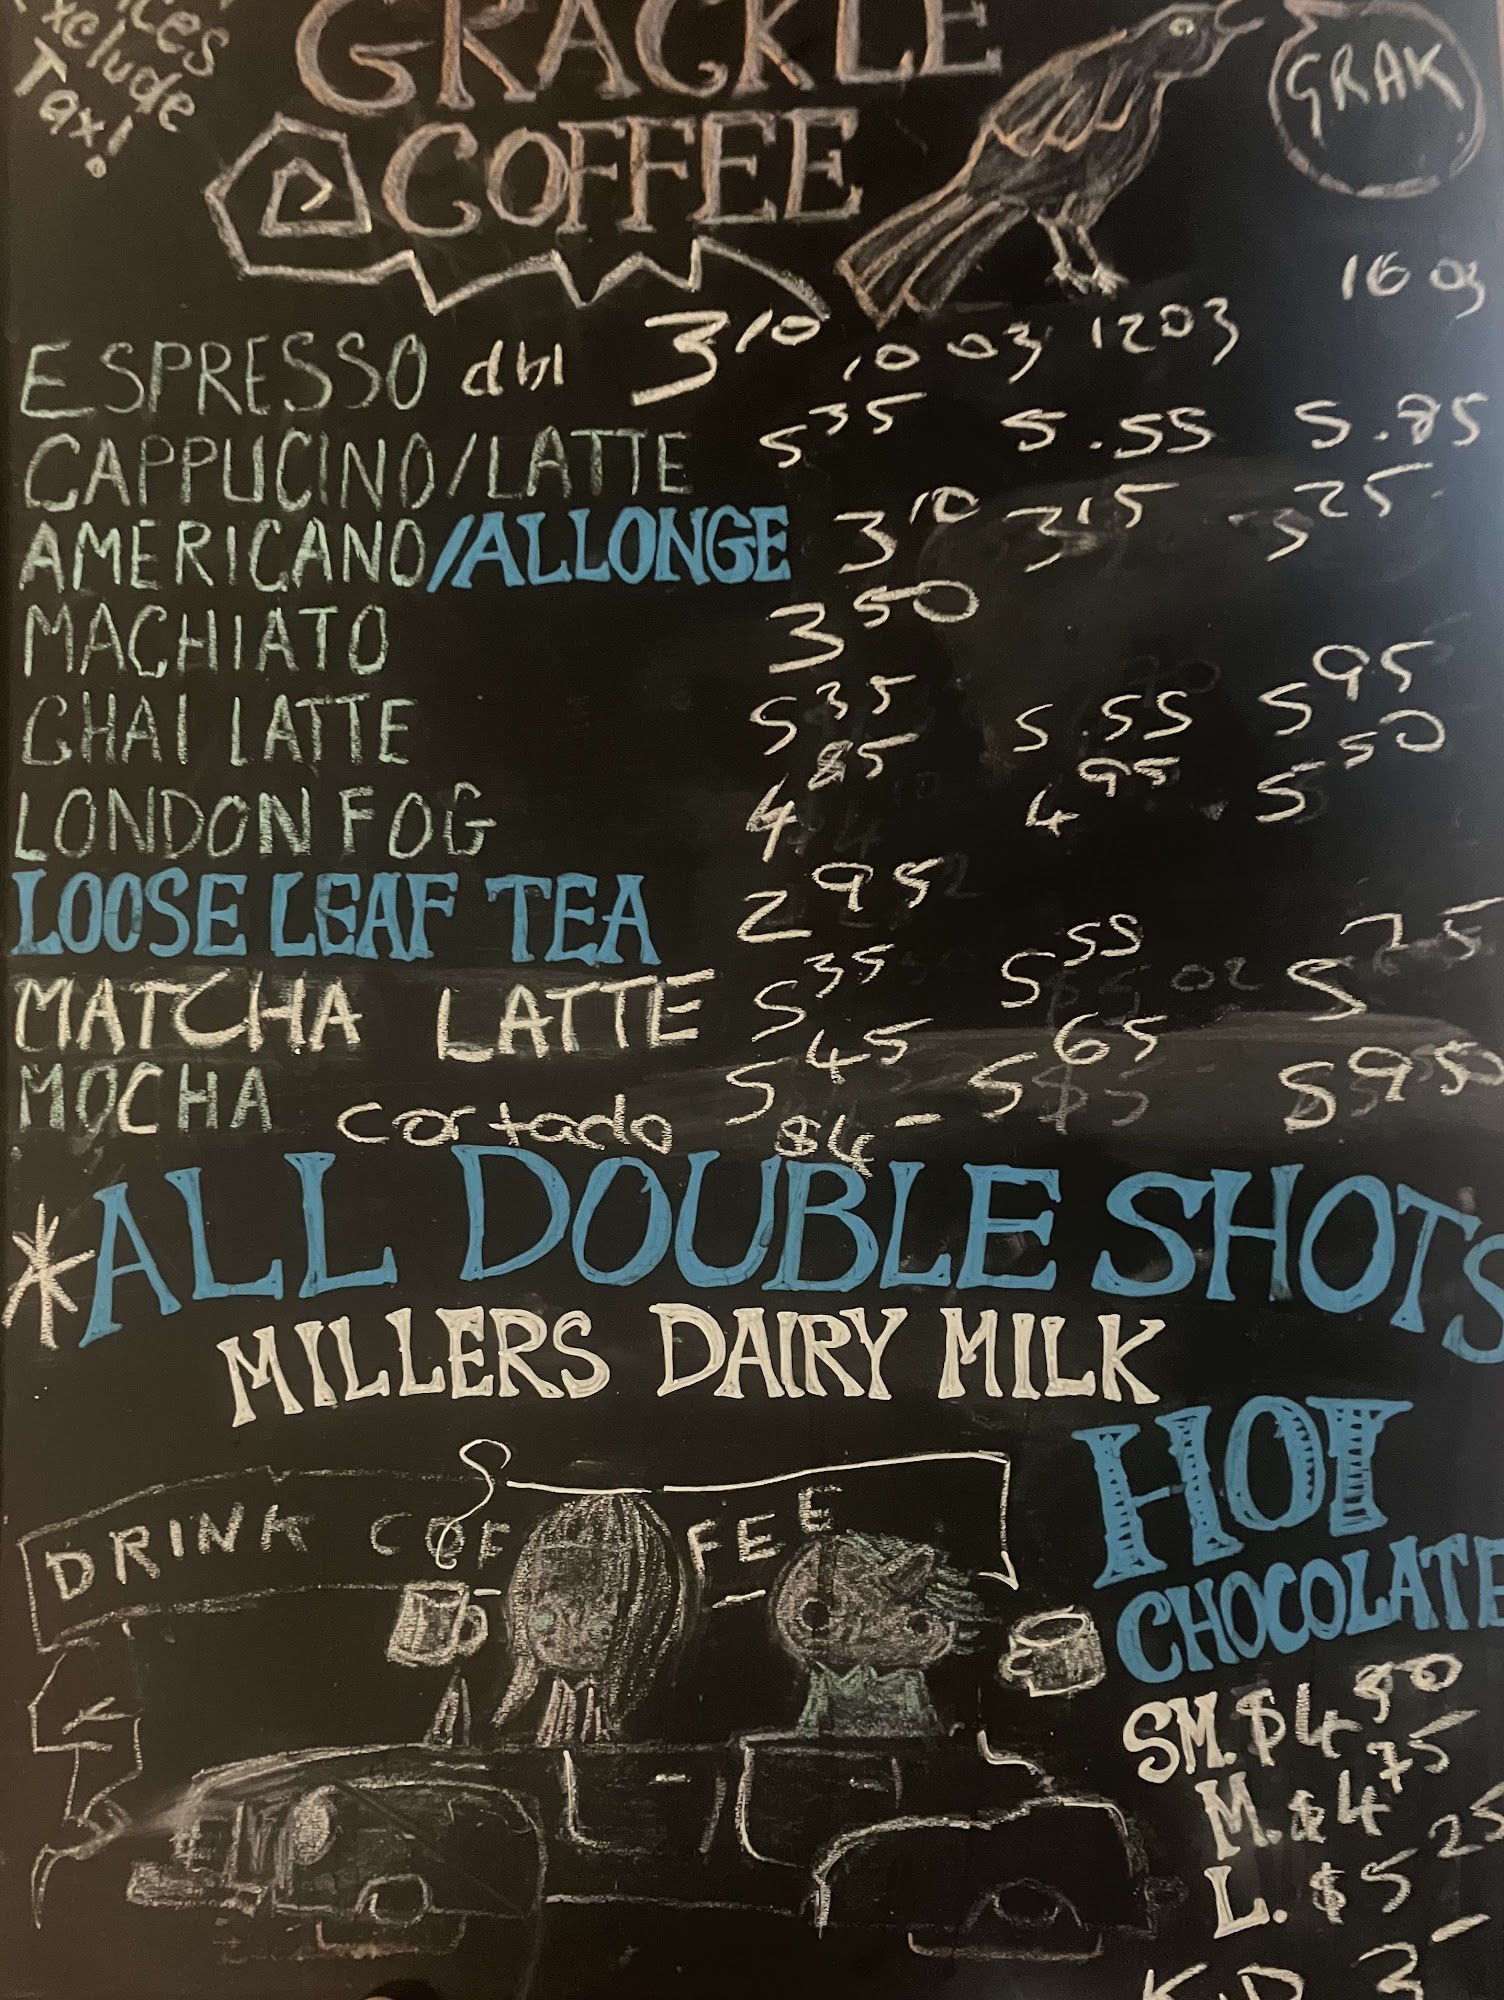 ices
xclude
Tax!
GRACKLE
COFFEE
GRAK
10 oz 12 oz 16 oz
ESPRESSO dbl 3 10
CAPPUCINO/LATTE 5 35 5.55 5.85
AMERICANO/ALLONGE 3 10 3 15 3 25
MACHIATO 3 50
CHAI LATTE 5 35 5.55 5 95
LONDON FOG 4 85 4 95 5 50
LOOSE LEAF TEA 2 95
MATCHA LATTE 5 35 5 55 5 75
MOCHA 5 45 5 65 5 95
cortado $4 -
*ALL DOUBLE SHOTS
MILLERS DAIRY MILK
DRINK COFFEE
HOT
CHOCOLATE
SM. $4
M. $4 75
L. $5 25
KID 3 -